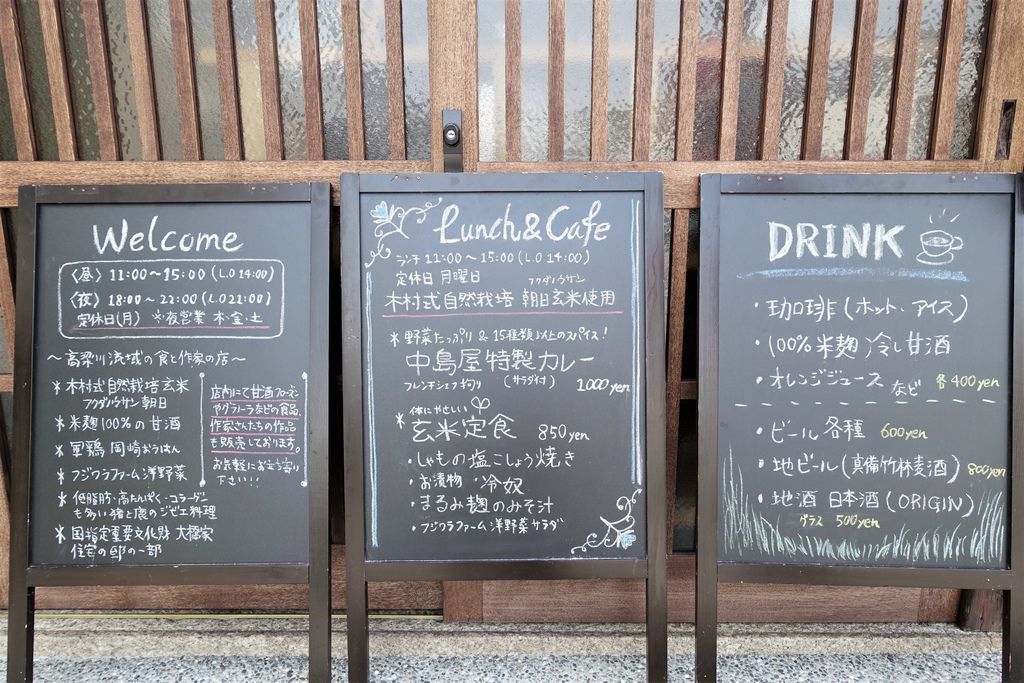 Welcome
〈昼〉 11:00〜15:00 (L.O 14:00)
〈夜〉 18:00〜22:00 (L.O 21:00)
定休日(月) ※夜営業 木・金・土
〜高梁川流域の食と作家の店〜
* 木村式自然栽培玄米
フクダノウサン 朝日
* 米麹100%の甘酒
* 軍鶏 岡崎おうはん
* フジワラファーム洋野菜
* 低脂肪・高たんぱく・コラーゲン
も多い猪と鹿のジビエ料理
* 国指定重要文化財 大橋家
住宅の邸の一部
店内にて甘酒フローズン
やグラノーラなどの食品、
作家さんたちの作品
も販売しております。
お気軽にお立寄り
下さい!!
Lunch & Cafe
ランチ 11:00〜15:00 (L.O 14:00)
定休日 月曜日
フクダノウサン
木村式自然栽培 朝日玄米使用
* 野菜たっぷり & 15種類以上のスパイス!
中島屋特製カレー
フレンチシェフ
(サラダ付) 1000yen
* 体にやさしい
玄米定食 850yen
・しゃもの塩こしょう焼き
・お漬物 ・冷奴
・まるみ麹のみそ汁
・フジワラファーム洋野菜サラダ
DRINK
・珈琲 (ホット・アイス)
・100%米麹 冷し甘酒
・オレンジジュース など 各400yen
・ビール 各種 600yen
・地ビール (真備竹林麦酒) 800yen
・地酒 日本酒 (ORIGIN)
グラス 500yen